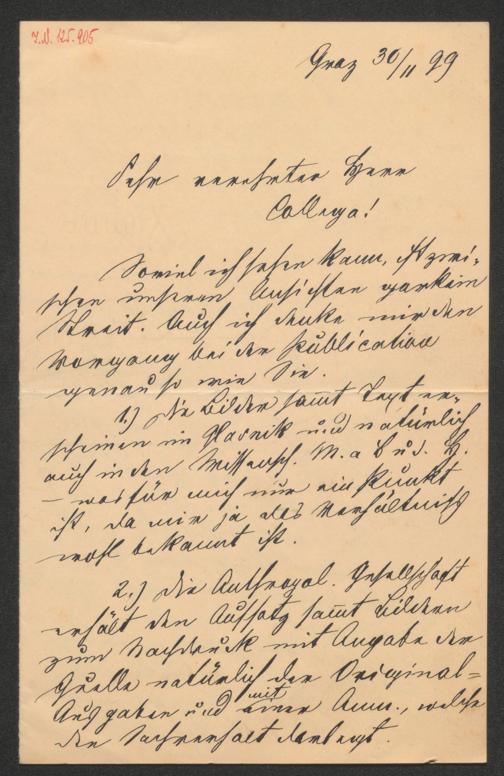 I.N. 125.905
Graz 30/11 99
Sehr verehrter Herr
Collega!
Soviel ich sehen kann, ist zwi-
schen unseren Ansichten gar kein
Streit. Auch ich denke mir den
Vorgang bei der Publication
genau so wie Sie.
1.) Die Bilder sammt Text er-
scheinen im Glasnik und natürlich
auch in den Wissensch. M. a B u d. H.
– was für mich nur ein Punkt
ist, da mir ja das Verhältniß
wohl bekannt ist.
2.) Die Anthropol. Gesellschaft
erhält den Aufsatz sammt Bildern
zum Nachdruck mit Angabe der
Quelle natürlich der Original-
Ausgaben und mit einer Anm., welche
den Sachverhalt darlegt.